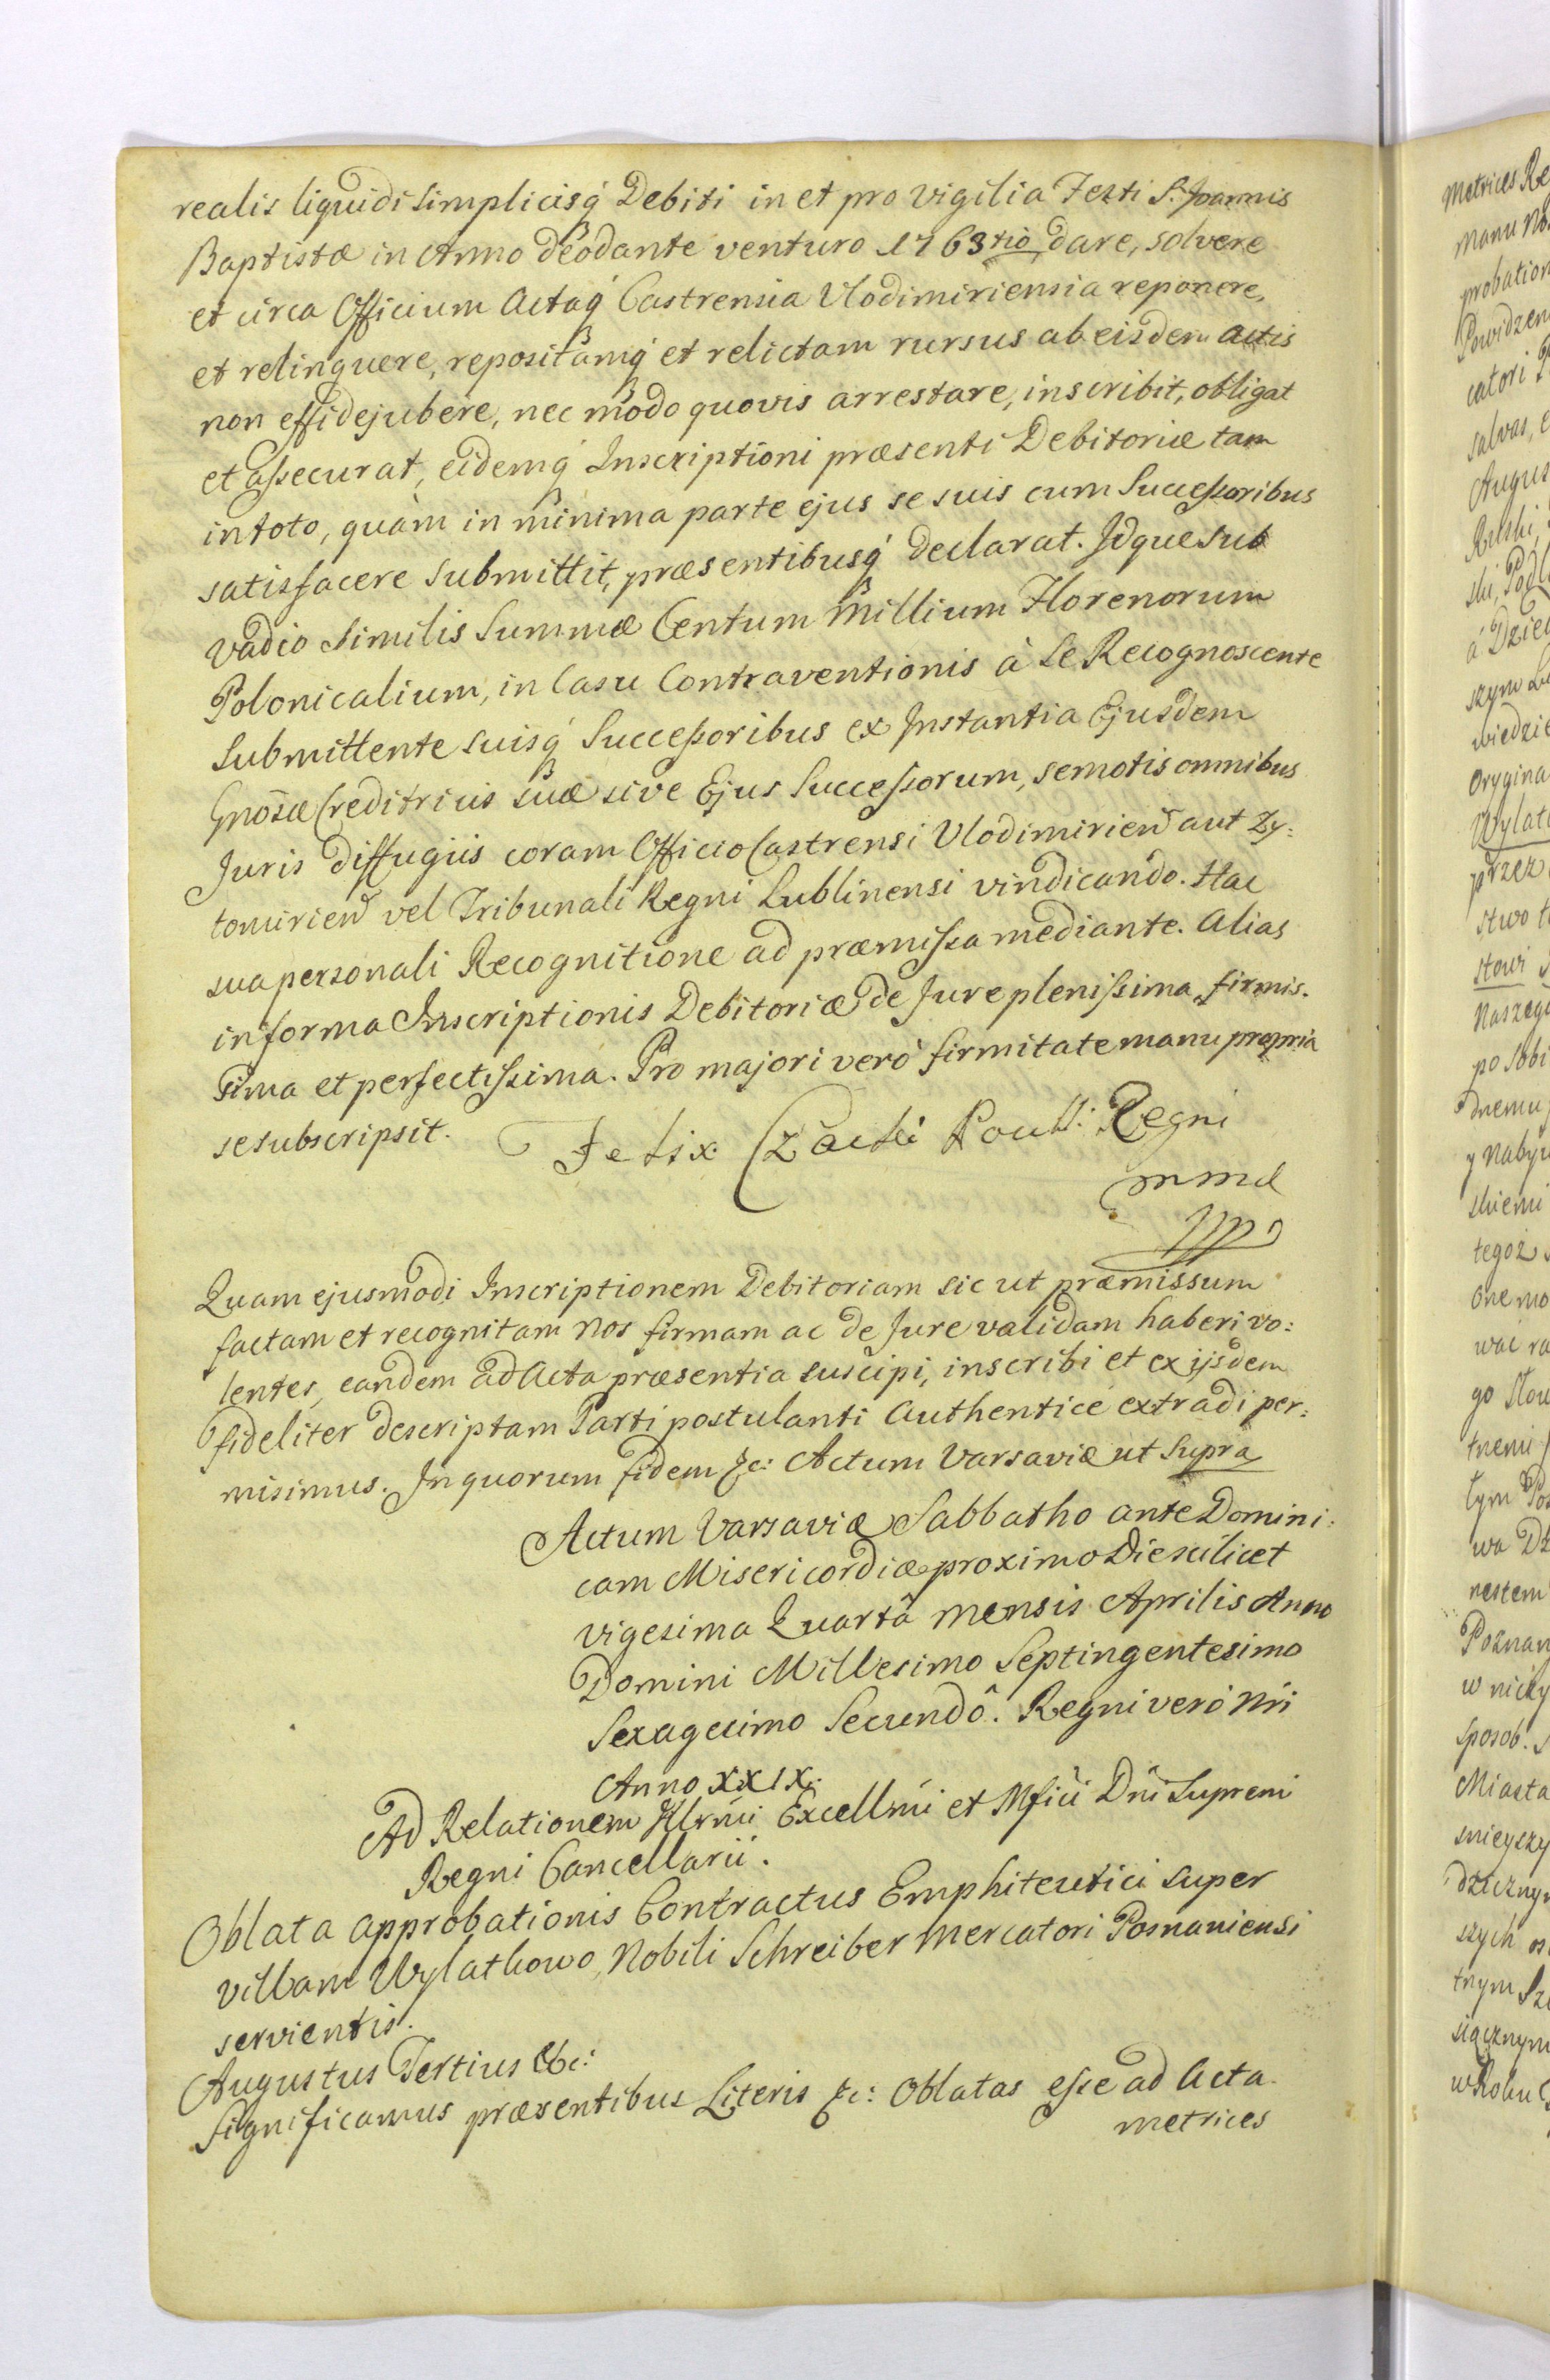 realis liquidi simplicisq́ Debiti in et pro vigilia Festi S. Joannis
Baptistæ in Anno deodante venturo 1763tio dare, solvere
et circa Officium Actaq́ Castrensia Vlodimiriensia reponere,
et relinquere, repositamq́ et relictam rursus ab eisdem actis
non effidejubere, nec modo quovis arrestare, inscribit, obligat
et assecurat, eidemq́ Inscriptioni præsenti Debitoriæ tam
in toto, quàm in minima parte ejus se suis cum Successoribus
satisfacere submittit, præsentibusq́ declarat. Idque sub
vadio similis Summæ Centum Millium Florenorum
Polonicalium, in Casu Contraventionis à Se Recognoscente
Submittente suisq́ Successoribus ex Instantia Ejusdem
Gnosæ Creditricis suæ sive Ejus Successorum, semotis omnibus
Juris diffugiis coram Officio Castrensi Vlodimirien aut Zy:
tomirien vel Tribunali Regni Lublinensi vindicando. Hac
sua personali Recognitione ad præmissa mediante. Alias
in forma Inscriptionis Debitoriæ de Jure plenissima, firmis.
sima et perfectissima. Pro majori verò firmitate manu propria
se subscripsit.
Felix Czacki Regni
mmd
mp
Quam ejusmodi Inscriptionem Debitoriam sic ut præmissum
factam et recognitam Nos firmam ac de Jure validam haberi vo:
lentes, eandem ad Acta præsentia suscipi, inscribi et ex ijsdem
fideliter descriptam Parti postulanti Authenticè extradi per:
misimus. In quorum fidem &c: Actum Varsaviæ ut Supra
Actum Varsaviæ Sabbatho ante Domini:
cam Misericordiæ proximo Die scilicet
vigesima Quartâ Mensis Aprilis Anno
Domini Millesimo Septingentesimo
Sexagesimo Secundô. Regni verò Nri
Anno XXIX.
Ad Relationem Illrmi Excellmi et Mfici Dni Supremi
Regni Cancellarii.
Oblata approbationis Contractus Emphiteutici super
villam Wylatkowo, Nobili Schreiber Mercatori Posnaniensi
servientis.
Augustus Tertius &c:
Significamus præsentibus Literis &c: Oblatas esse ad Acta
metrices